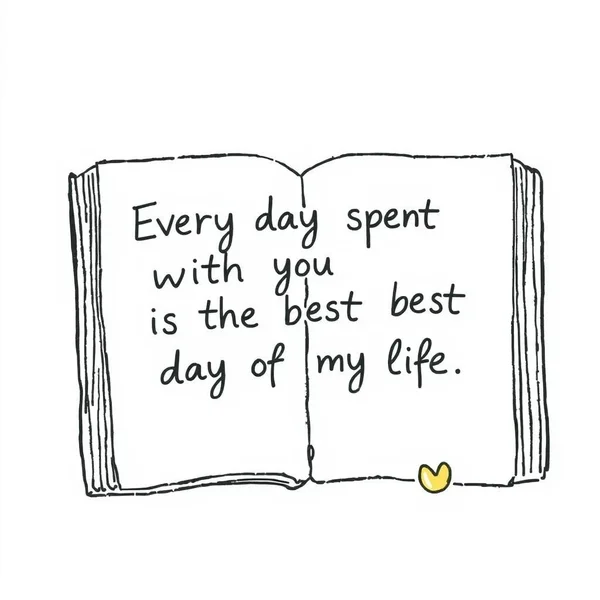 Every day spent
with you
is the best best
day of my life.